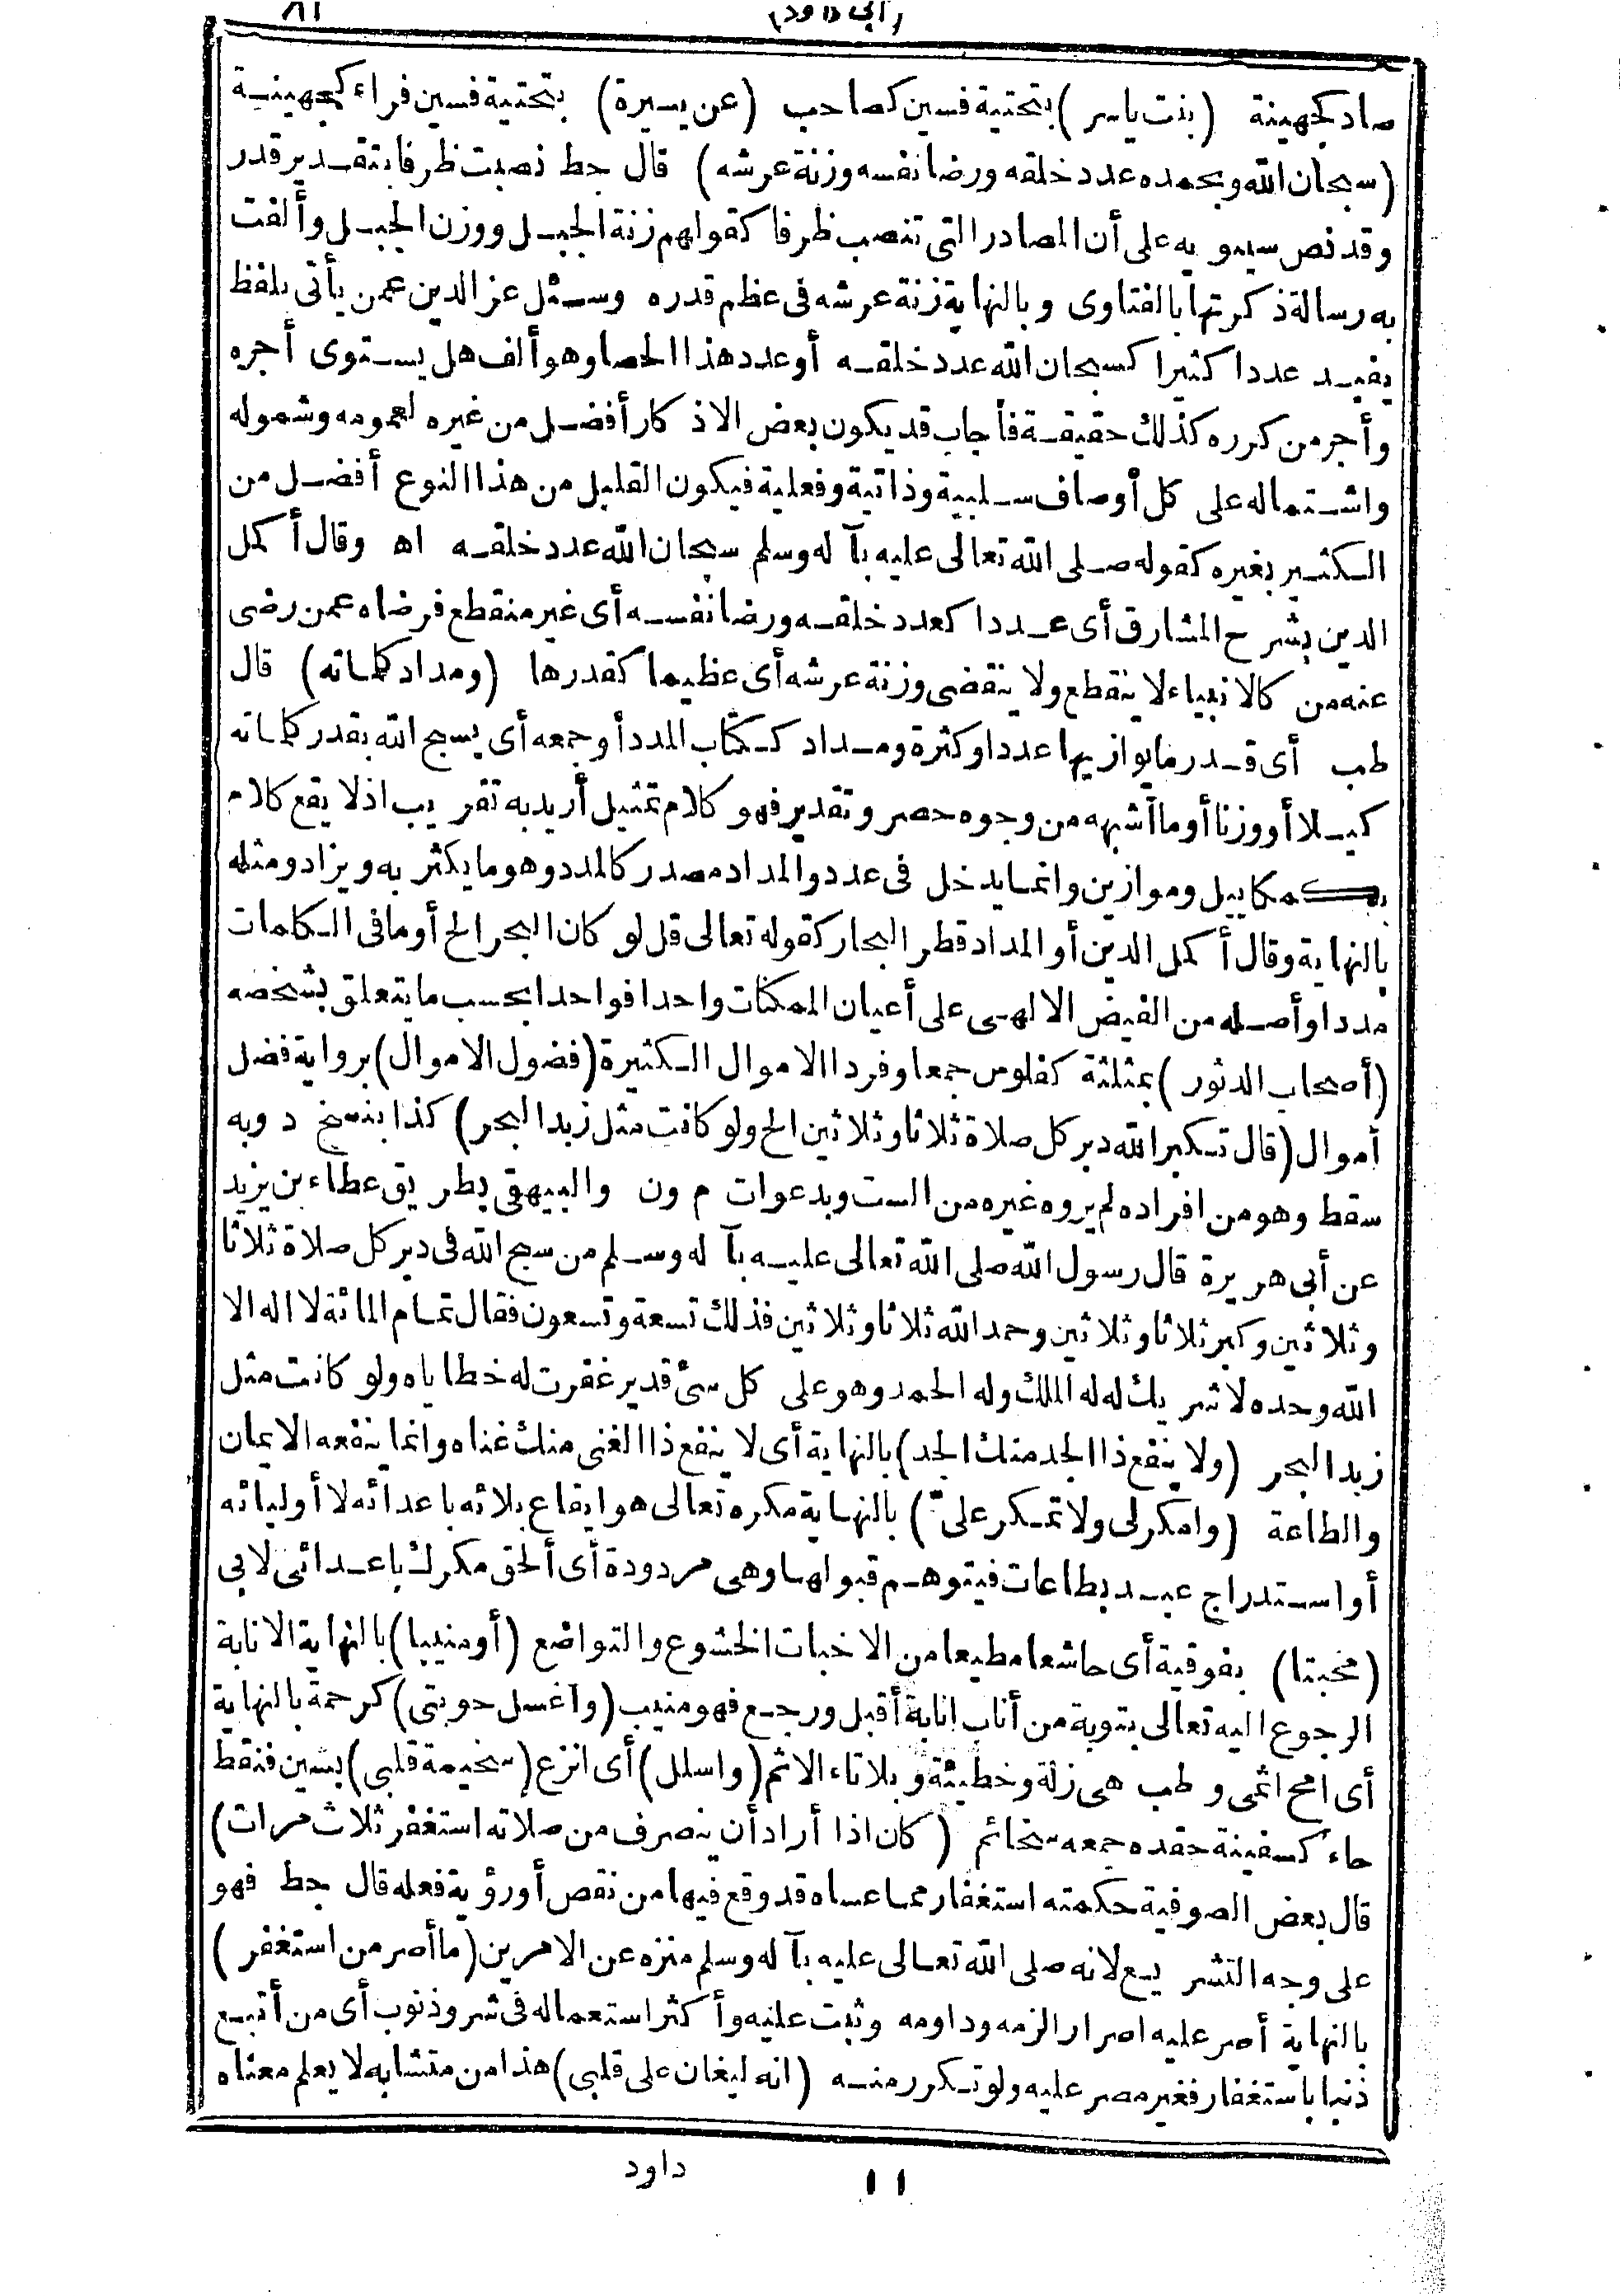 (أبى داود) ٨١
صاد كجهينة (بنت ياسر) بتحتية فسين كصاحب (عن يسيرة) بتحتية فسين فراء كجهينة
(سبحان الله وبحمده عدد خلقه ورضا نفسه وزنة عرشه) قال حط نصبت ظرفا بتقدير قدر
وقد نص سيبويه على أن المصادر التى تنصب ظرفا كقولهم زنة الجبل ووزن الجبل وألفت
به رسالة ذكرتها بالفتاوى وبالنهاية زنة عرشه فى عظم قدره وسئل عز الدين عمن يأتى بلفظ
يفيد عددا كثيرا كسبحان الله عدد خلقه أو عدد هذا الحصا وهو ألف هل يستوى أجره
وأجر من كرره كذلك حقيقة فأجاب قد يكون بعض الاذكار أفضل من غيره لعمومه وشموله
واشتماله على كل أوصاف سلبية وذاتية وفعلية فيكون القليل من هذا النوع أفضل من
الكثير بغيره كقوله صلى الله تعالى عليه بآله وسلم سبحان الله عدد خلقه اه وقال أكمل
الدين بشرح المشارق أى عددا كعدد خلقه ورضا نفسه أى غير منقطع فرضاه عمن رضى
عنه من كالانبياء لا ينقطع ولا ينقضى وزنة عرشه أى عظيما كقدرها (ومداد كلماته) قال
طب أى قدر ما يوازيها عددا وكثرة ومداد ككتاب المدد أو جمعه أى يسبح الله بقدر كلماته
كيلا أو وزنا أو ما أشبهه من وجوه حصر وتقدير فهو كلام تمثيل أريد به تقريب اذ لا يقع كلام
بكمكاييل وموازين وانما يدخل فى عدد والمداد مصدر كالمدد وهو ما يكثر به ويزاد ومثله
بالنهاية وقال أكمل الدين أو المداد قطر البحار كقوله تعالى قل لو كان البحر الخ أو ما فى الكلمات
مددا وأصله من الفيض الالهى على أعيان الممكنات واحدا فواحدا بحسب ما يتعلق بشخصه
(أصحاب الدثور) بمثلثة كفلوس جمعا وفردا الاموال الكثيرة (فضول الاموال) برواية فضل
أموال (قال تكبر الله دبر كل صلاة ثلاثا وثلاثين الخ ولو كانت مثل زبد البحر) كذا بنسخ د وبه
سقط وهو من افراده لم يروه غيره من الست وبدعوات م ون والبيهقى بطريق عطاء بن يزيد
عن أبى هريرة قال رسول الله صلى الله تعالى عليه بآله وسلم من سبح الله فى دبر كل صلاة ثلاثا
وثلاثين وكبر ثلاثا وثلاثين وحمد الله ثلاثا وثلاثين فذلك تسعة وتسعون فقال تمام المائة لا اله الا
الله وحده لا شريك له له الملك وله الحمد وهو على كل شئ قدير غفرت له خطاياه ولو كانت مثل
زبد البحر (ولا ينفع ذا الجد منك الجد) بالنهاية أى لا ينفع ذا الغنى منك غناه وانما ينفعه الايمان
والطاعة (وامكر لى ولا تمكر علىّ) بالنهاية مكره تعالى هو ايقاع بلائه باعدائه لا أوليائه
أو استدراج عبد بطاعات فيتوهم قبولها وهى مردودة أى ألحق مكرك باعدائى لا بى
(مخبتا) بفوقية أى خاشعا مطيعا من الاخبات الخشوع والتواضع (أو منيبا) بالنهاية الانابة
الرجوع اليه تعالى بتوبة من أناب انابة أقبل ورجع فهو منيب (واغسل حوبتى) كرحمة بالنهاية
أى امح اثمى وطب هى زلة وخطيئة وبلا تاء الاثم (واسلل) أى انزع (سخيمة قلبى) بسين فنقط
حاء كسفينة حقده جمعه سخائم (كان اذا أراد أن ينصرف من صلاته استغفر ثلاث مرات)
قال بعض الصوفية حكمته استغفار مما عساه قد وقع فيها من نقص أو رؤية فعله قال حط فهو
على وجه التشريع لانه صلى الله تعالى عليه بآله وسلم منزه عن الامرين (ما أصر من استغفر)
بالنهاية أصر عليه اصرارا لزمه وداومه وثبت عليه وأكثر استعماله فى شر وذنوب أى من أتبع
ذنبا باستغفار فغير مصر عليه ولو تكرر منه (انه ليغان على قلبى) هذا من متشابه لا يعلم معناه
١١ داود